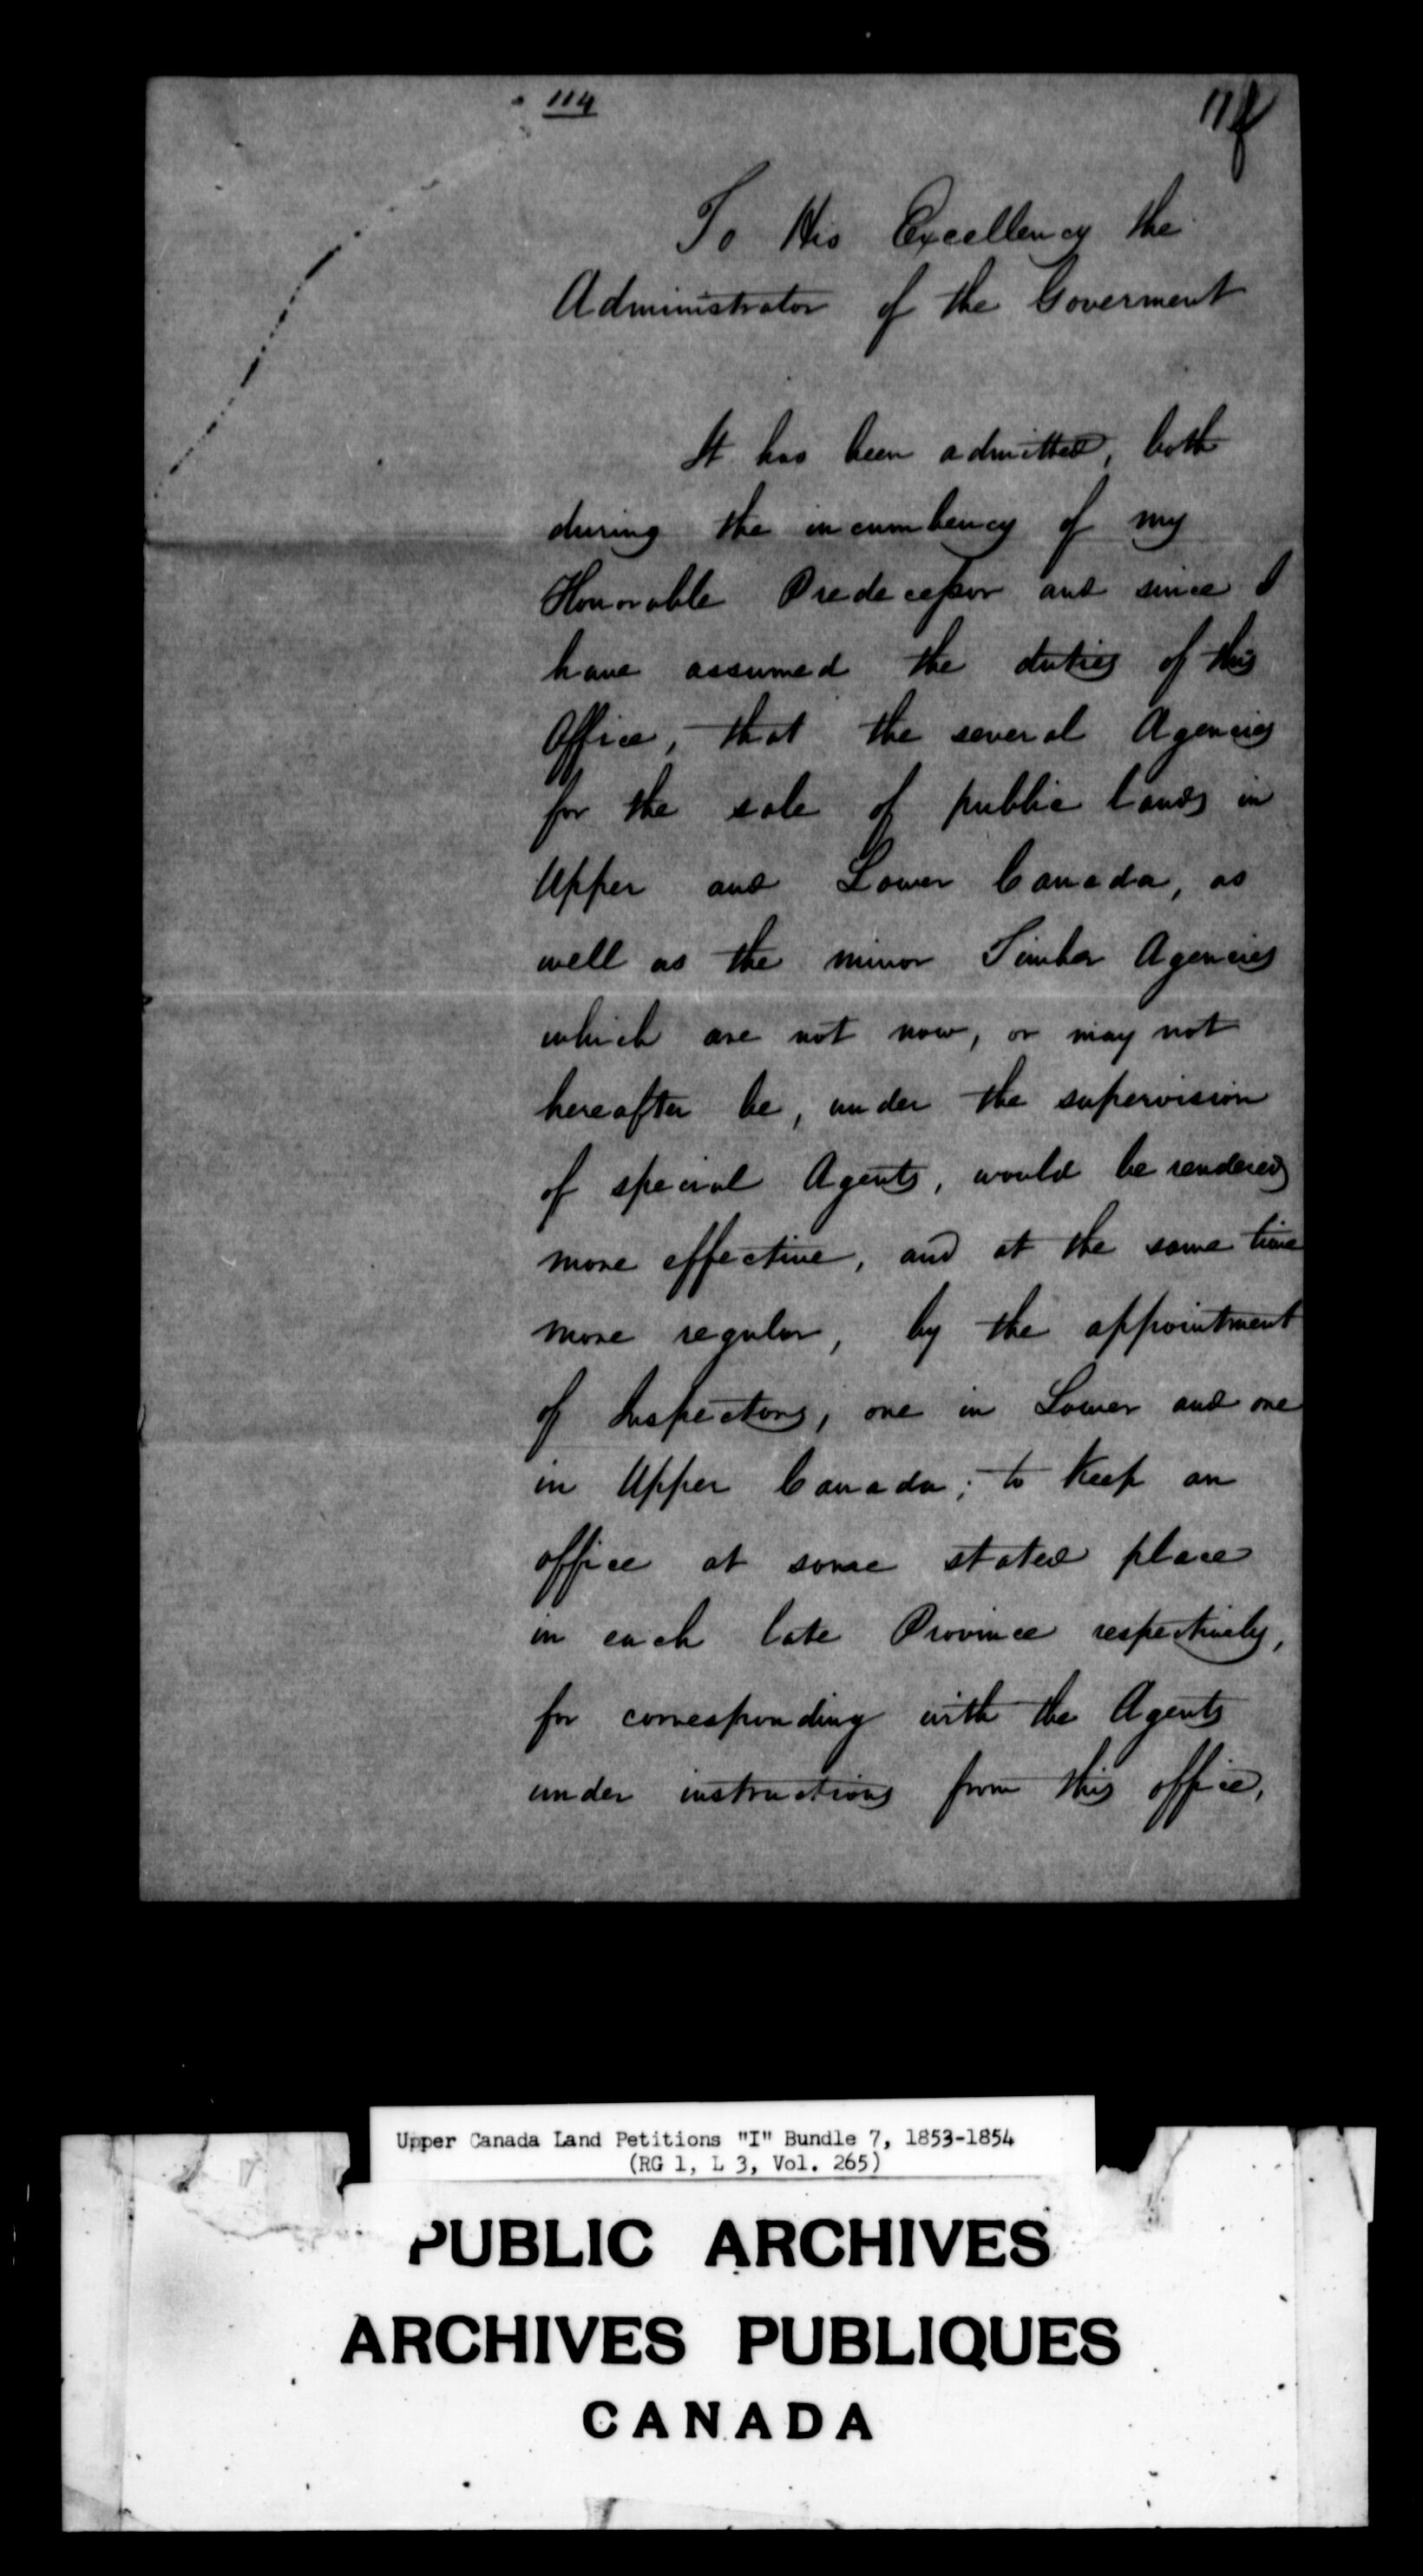 114
To His Excellency the
Administrator of the Goverment
It has been admitted, both
during the incumbency of my
Honorable Predecessor and since I
have assumed the duties of this
Office, that the several Agencies
for the sale of public lands in
Upper and Lower Canada, as
well as the minor Timber Agencies
which are not now, or may not
hereafter be, under the supervision
of special Agents, would be rendered
more effective, and at the same time
more regular, by the appointment
of Inspectors, one in Lower and one
in Upper Canada; to keep an
office at some stated place
in each late Province respectively,
for corresponding with the Agents
under instructions from this office,
Upper Canada Land Petitions "I" Bundle 7, 1853-1854
(RG 1, L 3, Vol. 265)
PUBLIC ARCHIVES
ARCHIVES PUBLIQUES
CANADA